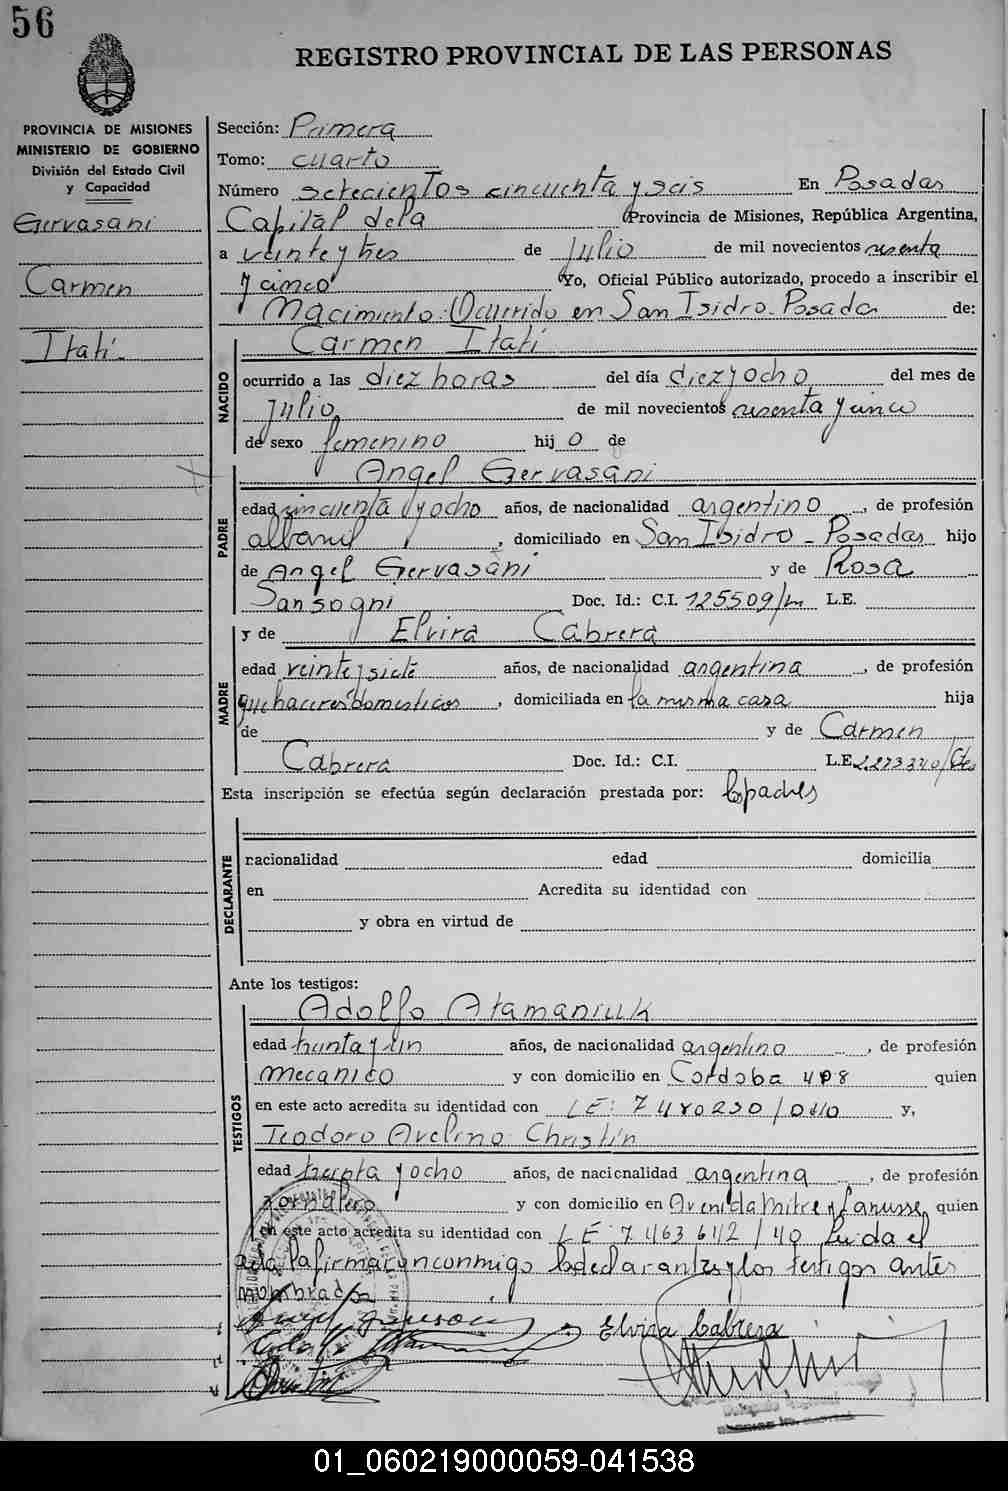 56
REGISTRO PROVINCIAL DE LAS PERSONAS
PROVINCIA DE MISIONES
MINISTERIO DE GOBIERNO
División del Estado Civil
y Capacidad
Gervasani
Carmen
Itatí
Sección: Primera
Tomo: cuarto
Número setecientos cincuenta y seis En Posadas
Capital de la Provincia de Misiones, República Argentina,
a veinte y tres de Julio de mil novecientos sesenta
y cinco Yo, Oficial Público autorizado, procedo a inscribir el
Nacimiento: Ocurrido en San Isidro - Posadas de:
Carmen Itatí
NACIDO
ocurrido a las diez horas del día diez y ocho del mes de
Julio de mil novecientos sesenta y cinco
de sexo femenino hij o de
Angel Gervasani
PADRE
edad cincuenta y ocho años, de nacionalidad argentino, de profesión
albanil, domiciliado en San Isidro - Posadas hijo
de Angel Gervasani y de Rosa
Sansogni Doc. Id.: C.I. 125509/m L.E.
y de Elvira Cabrera
MADRE
edad veinte y siete años, de nacionalidad argentina, de profesión
quehaceres domesticos, domiciliada en la misma casa hija
de y de Carmen
Cabrera Doc. Id.: C.I. L.E. 2.273340/Ctes
Esta inscripción se efectúa según declaración prestada por: los padres
DECLARANTE
nacionalidad edad domicilia
en Acredita su identidad con
y obra en virtud de
Ante los testigos:
Adolfo Atamaniuk
TESTIGOS
edad treinta y un años, de nacionalidad argentino, de profesión
mecanico y con domicilio en Cordoba 408 quien
en este acto acredita su identidad con LE: 7480230/0410 y,
Teodoro Avelino Christin
edad treinta y ocho años, de nacionalidad argentina, de profesión
Jornalero y con domicilio en Avenida Mitre y Lanusse quien
en este acto acredita su identidad con LE: 7.463642/40 Leida el
acta la firmaron conmigo los declarantes y los testigos antes
nombrados
Elvira Cabrera
01_060219000059-041538